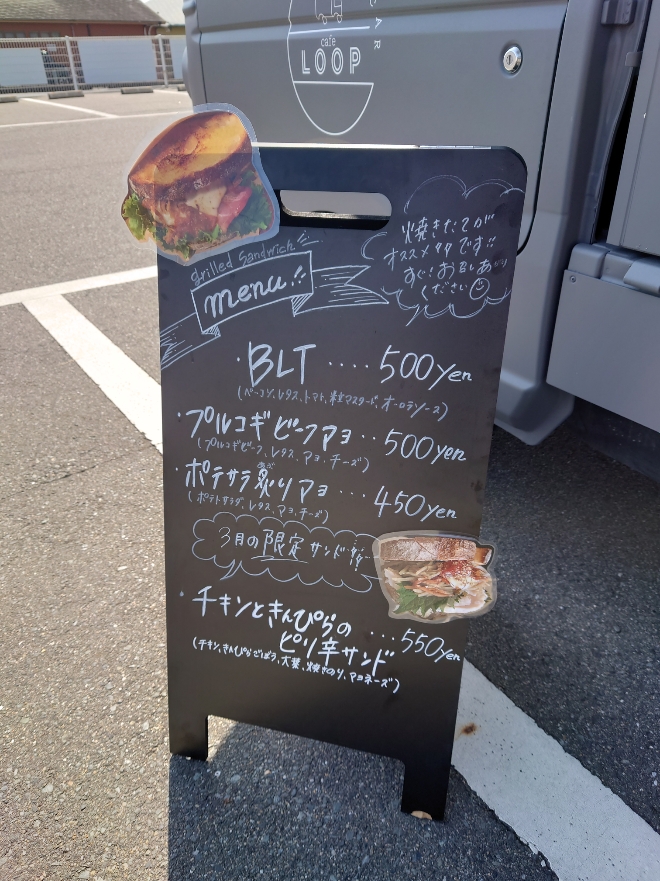 cafe
LOOP
CAR
grilled Sandwich
menu!!
焼きたてが
オススメです!!
すぐ!お召しあがり
ください
・BLT ・・・・ 500yen
(ベーコン、レタス、トマト、粒マスタード、オーロラソース)
・プルコギビーフマヨ ・・ 500yen
(プルコギビーフ、レタス、マヨ、チーズ)
・ポテサラ炙りマヨ ・・・ 450yen
(ポテトサラダ、レタス、マヨ、チーズ)
3月の限定サンド
・チキンときんぴらの
ピリ辛サンド ・・・550yen
(チキン、きんぴらごぼう、大葉、焼きのり、マヨネーズ)